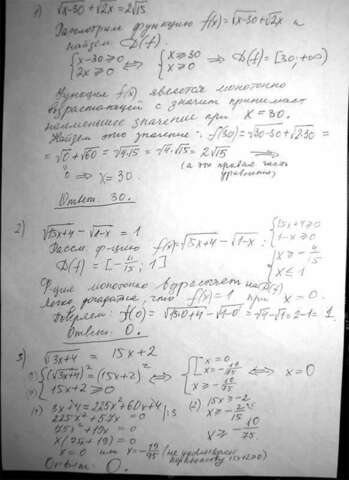 1) √x-30 + √2x = 2√15
Рассмотрим функцию f(x) = √x-30 + √2x и
найдём D(f).
{x-30 ≥ 0 ⇔ {x ≥ 30 ⇒ D(f) = [30; +∞)
{2x ≥ 0 {x ≥ 0
Функция f(x) является монотонно
возрастающей, а значит принимает
наименьшее значение при x = 30.
Найдём это значение: f(30) = √30-30 + √2·30 =
= √0 + √60 = √4·15 = √4·√15 = 2√15 ⇒
(а это правая часть
уравнения)
⇒ x = 30
Ответ: 30.
2) √15x+4 - √1-x = 1
Рассм. ф-цию f(x) = √15x+4 - √1-x : {15x+4 ≥ 0
{1-x ≥ 0
D(f) = [-4/15; 1] {x ≥ -4/15
{x ≤ 1
Ф-ция монотонно возрастает на D(f)
легко догадаться, что f(x) = 1 при x = 0.
Проверяем: f(0) = √15·0+4 - √1-0 = √4 - √1 = 2-1 = 1
Ответ: 0.
3) √3x+4 = 15x+2
(1) {(√3x+4)² = (15x+2)² ⇔ {[x = 0 ⇔ x = 0
[x = -19/75
(2) {15x+2 ≥ 0 {x ≥ -10/75
(1) 3x+4 = 225x²+60x+4 (2) 15x ≥ -2
225x²+57x = 0 |:3 x ≥ -2/15
75x²+19x = 0 x ≥ -10/75
x(75x+19) = 0
x = 0 или x = -19/75 (не удовлетворяет
неравенству 15x+2≥0)
Ответ: 0.